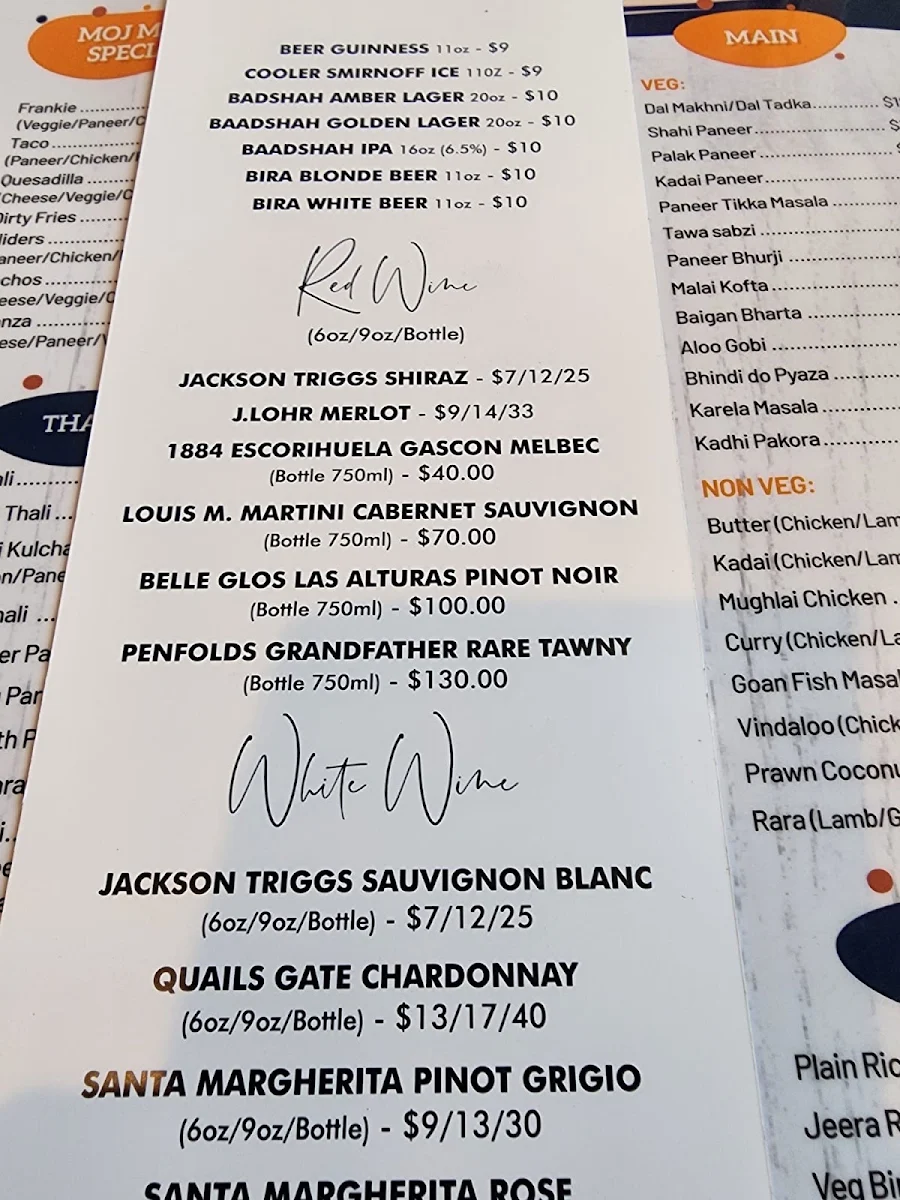 MOJ M
SPECI
Frankie
(Veggie/Paneer/C
Taco
(Paneer/Chicken/
Quesadilla
Cheese/Veggie/C
Dirty Fries
liders
aneer/Chicken/
chos
eese/Veggie/C
nza
ese/Paneer/V
THA
ali
Thali
i Kulcha
n/Pane
hali
er Pa
Par
th P
ara
BEER GUINNESS 11oz - $9
COOLER SMIRNOFF ICE 11OZ - $9
BADSHAH AMBER LAGER 20oz - $10
BAADSHAH GOLDEN LAGER 20oz - $10
BAADSHAH IPA 16oz (6.5%) - $10
BIRA BLONDE BEER 11oz - $10
BIRA WHITE BEER 11oz - $10
Red Wine
(6oz/9oz/Bottle)
JACKSON TRIGGS SHIRAZ - $7/12/25
J.LOHR MERLOT - $9/14/33
1884 ESCORIHUELA GASCON MELBEC
(Bottle 750ml) - $40.00
LOUIS M. MARTINI CABERNET SAUVIGNON
(Bottle 750ml) - $70.00
BELLE GLOS LAS ALTURAS PINOT NOIR
(Bottle 750ml) - $100.00
PENFOLDS GRANDFATHER RARE TAWNY
(Bottle 750ml) - $130.00
White Wine
JACKSON TRIGGS SAUVIGNON BLANC
(6oz/9oz/Bottle) - $7/12/25
QUAILS GATE CHARDONNAY
(6oz/9oz/Bottle) - $13/17/40
SANTA MARGHERITA PINOT GRIGIO
(6oz/9oz/Bottle) - $9/13/30
SANTA MARGHERITA ROSE
MAIN
VEG:
Dal Makhni/Dal Tadka
Shahi Paneer
Palak Paneer
Kadai Paneer
Paneer Tikka Masala
Tawa sabzi
Paneer Bhurji
Malai Kofta
Baigan Bharta
Aloo Gobi
Bhindi do Pyaza
Karela Masala
Kadhi Pakora
NON VEG:
Butter (Chicken/Lam
Kadai (Chicken/Lam
Mughlai Chicken
Curry (Chicken/La
Goan Fish Masal
Vindaloo (Chick
Prawn Coconu
Rara (Lamb/G
Plain Ric
Jeera R
Veg Bir